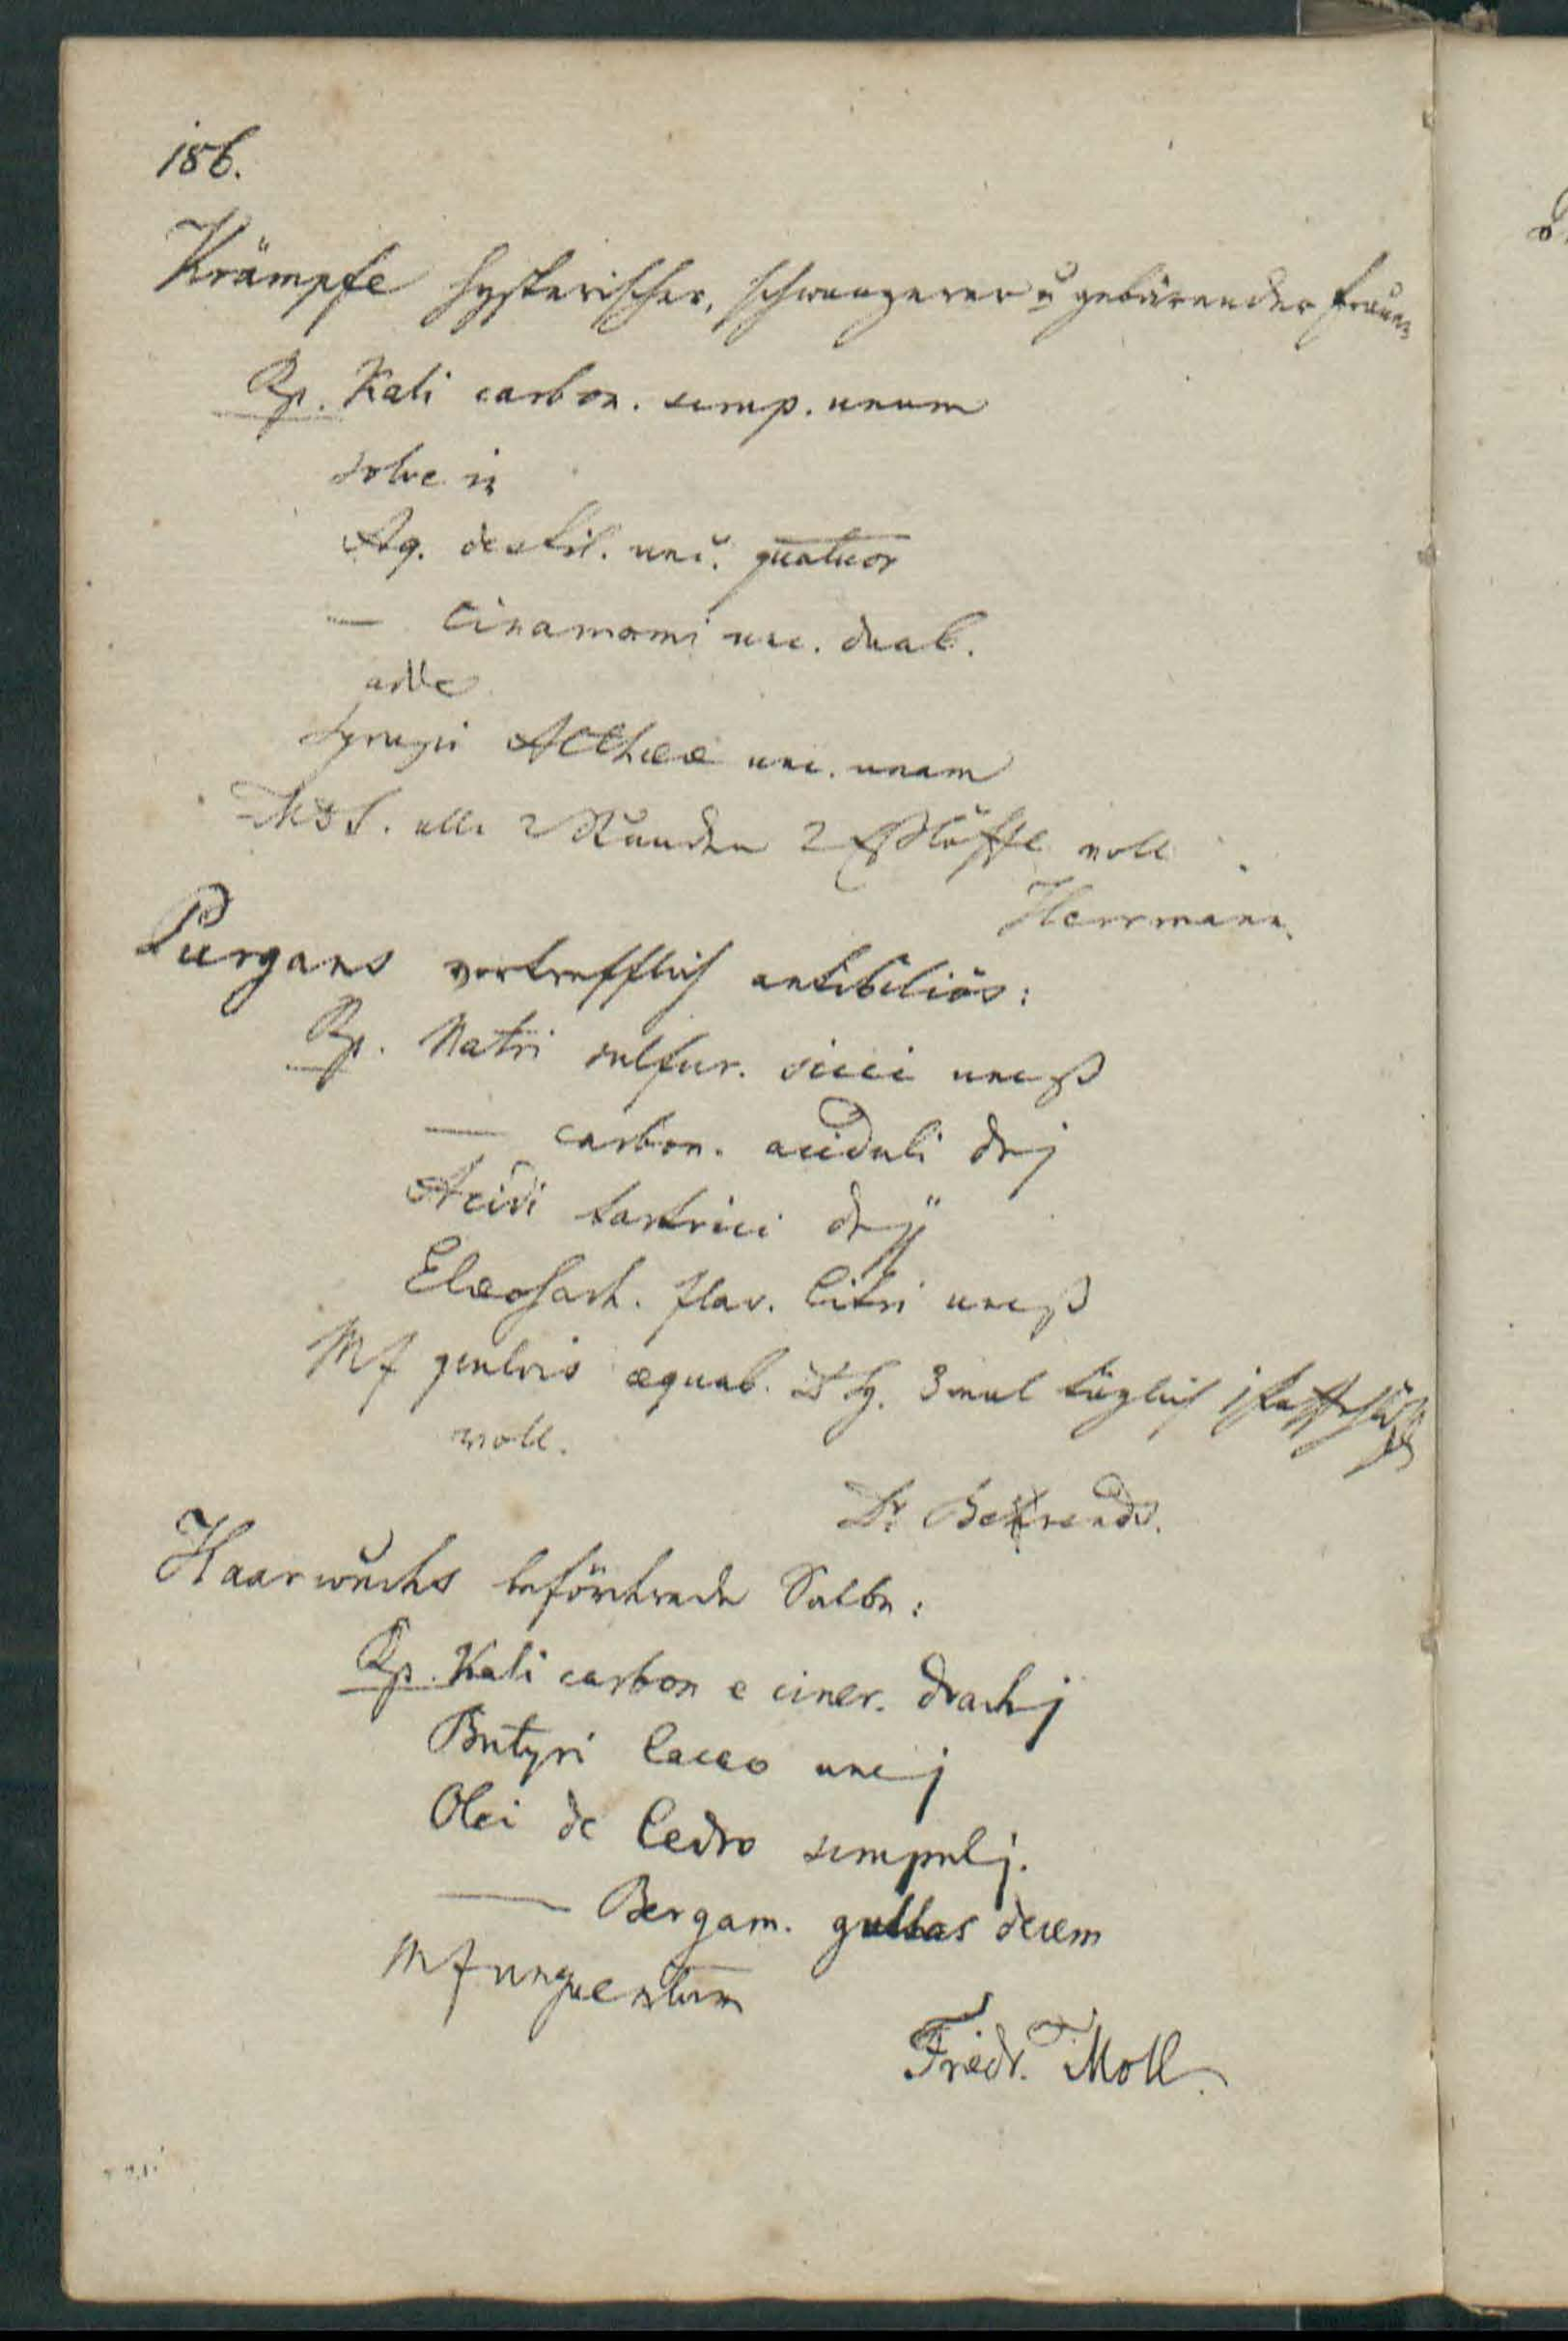 156.
Krämpfe hysterischer, schwangerer u gebärender Frauen
Rp. Kali carbon. scrup. unum
solve in
Aq. destil. unc. quatuor
— Cinamomi unc. duab.
adde
Syrupi Altheæ unc. unam
MDS. alle 2 Stunden 2 Eßlöffel voll
Herrmann.
Purgans vortrefflich antibiliös:
Rp. Natri sulfur. sicci uncß
— carbon. aciduli drj
Acidi tartrici drjj
Elæosach. flav. Citri uncß
Mf pulvis æquab. DSg. 3mal täglich 1
voll.
Dr. Behrends.
Haarwuchs befördernde Salbe:
Rp. Kali carbon e ciner. drachj
Butyri Cacao uncj
Olei de Cedro scrpulj.
— Bergam. guttas decem
Mf unguentum
Friedr. Moll.